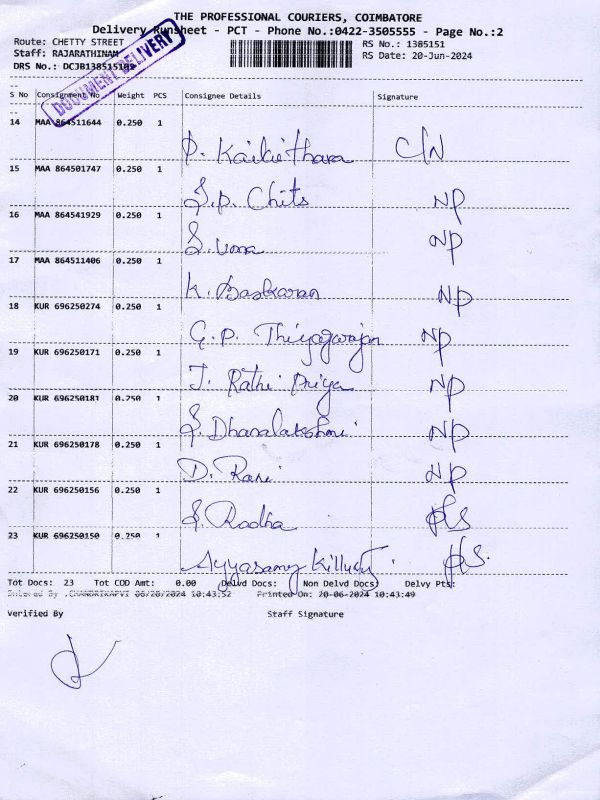 THE PROFESSIONAL COURIERS, COIMBATORE
Delivery Runsheet - PCT - Phone No.:0422-3505555 - Page No.:2
Route: CHETTY STREET RS No.: 1385151
Staff: RAJARATHINAM RS Date: 20-Jun-2024
DRS No.: DCJB1385151
DOCUMENT DELIVERY
S No Consignment No Weight PCS Consignee Details Signature
14 MAA 864511644 0.250 1
D. C/N
15 MAA 864501747 0.250 1
S.P. Chits NP
16 MAA 864541929 0.250 1
S. Uma NP
17 MAA 864511406 0.250 1
K. Baskaran NP
18 KUR 696250274 0.250 1
G. P. Thiyagarajan NP
19 KUR 696250171 0.250 1
T. Rathi Priya NP
20 KUR 696250181 0.250 1
S. Dhanalakshmi NP
21 KUR 696250178 0.250 1
D. Rani NP
22 KUR 696250156 0.250 1
S. Radha
23 KUR 696250150 0.250 1
Ayyasamy
Tot Docs: 23 Tot COD Amt: 0.00 Delvd Docs: Non Delvd Docs: Delvy Pts:
Entered By .CHANDRIKAPVI 06/20/2024 10:43:52 Printed On: 20-06-2024 10:43:49
Verified By Staff Signature